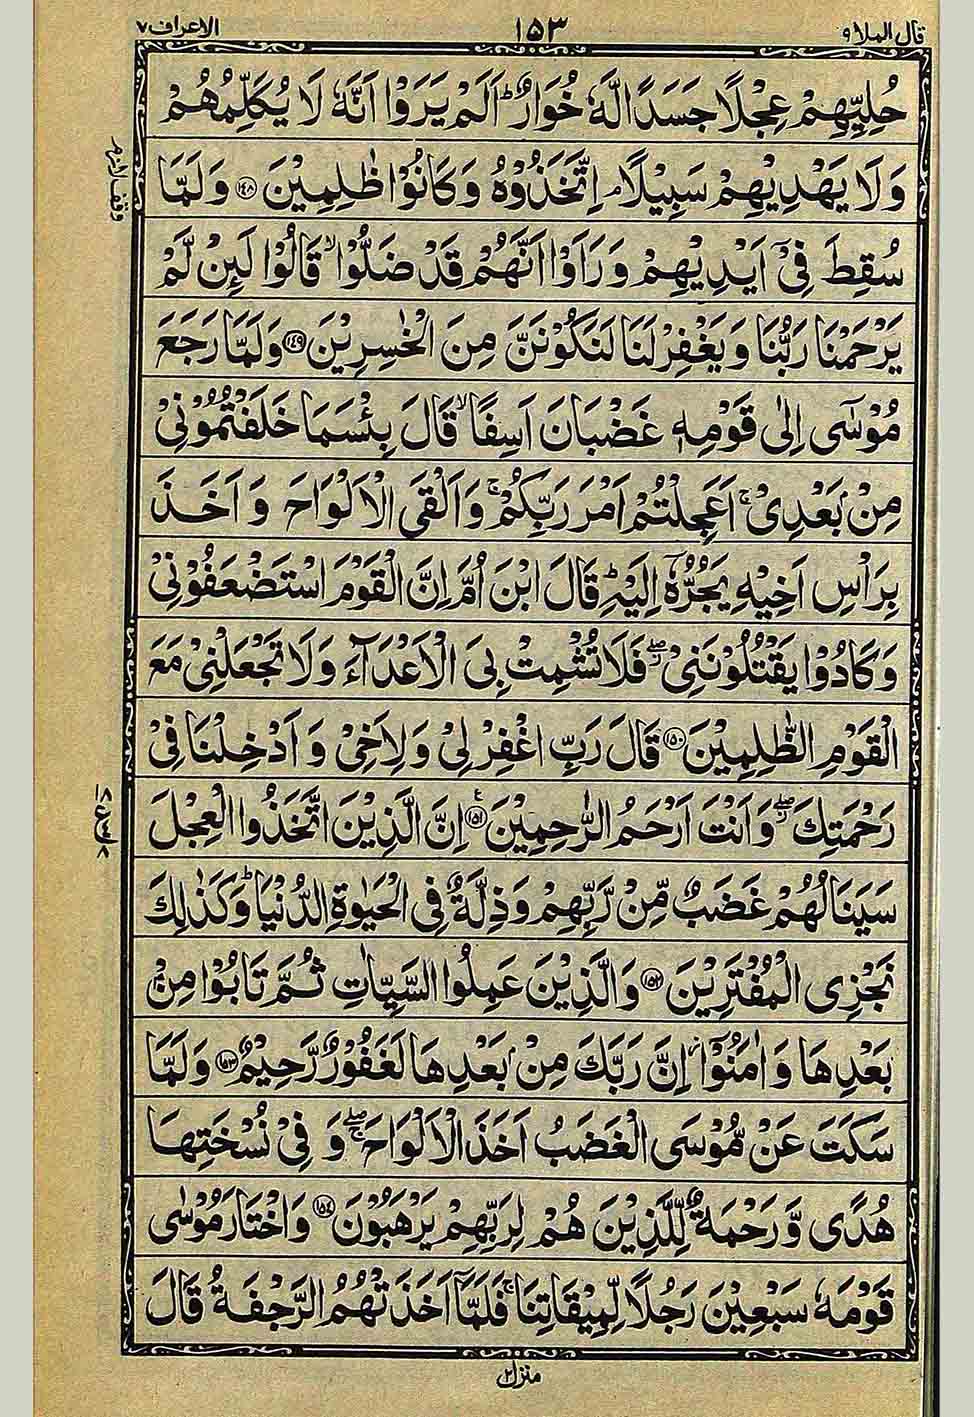 قال الملأ ٩
١٥٣
الاعراف ٧
حُلِيِّهِمْ عِجْلًا جَسَدًا لَّهٗ خُوَارٌ ؕ اَلَمْ يَرَوْا اَنَّهٗ لَا يُكَلِّمُهُمْ
وَلَا يَهْدِيْهِمْ سَبِيْلًا ۘ اِتَّخَذُوْهُ وَكَانُوْا ظٰلِمِيْنَ ﴿١٤٨﴾ وَلَمَّا
سُقِطَ فِيْۤ اَيْدِيْهِمْ وَرَاَوْا اَنَّهُمْ قَدْ ضَلُّوْا ۙ قَالُوْا لَئِنْ لَّمْ
يَرْحَمْنَا رَبُّنَا وَيَغْفِرْ لَنَا لَنَكُوْنَنَّ مِنَ الْخٰسِرِيْنَ ﴿١٤٩﴾ وَلَمَّا رَجَعَ
مُوْسٰۤى اِلٰى قَوْمِهٖ غَضْبَانَ اَسِفًا ۙ قَالَ بِئْسَمَا خَلَفْتُمُوْنِيْ
مِنْۢ بَعْدِيْ ۚ اَعَجِلْتُمْ اَمْرَ رَبِّكُمْ ۚ وَاَلْقَى الْاَلْوَاحَ وَاَخَذَ
بِرَاْسِ اَخِيْهِ يَجُرُّهٗۤ اِلَيْهِ ؕ قَالَ ابْنَ اُمَّ اِنَّ الْقَوْمَ اسْتَضْعَفُوْنِيْ
وَكَادُوْا يَقْتُلُوْنَنِيْ ۖ فَلَا تُشْمِتْ بِيَ الْاَعْدَآءَ وَلَا تَجْعَلْنِيْ مَعَ
الْقَوْمِ الظّٰلِمِيْنَ ﴿١٥٠﴾ قَالَ رَبِّ اغْفِرْ لِيْ وَلِاَخِيْ وَاَدْخِلْنَا فِيْ
رَحْمَتِكَ ۖ وَاَنْتَ اَرْحَمُ الرّٰحِمِيْنَ ﴿١٥١﴾ اِنَّ الَّذِيْنَ اتَّخَذُوا الْعِجْلَ
سَيَنَالُهُمْ غَضَبٌ مِّنْ رَّبِّهِمْ وَذِلَّةٌ فِي الْحَيٰوةِ الدُّنْيَا ؕ وَكَذٰلِكَ
نَجْزِي الْمُفْتَرِيْنَ ﴿١٥٢﴾ وَالَّذِيْنَ عَمِلُوا السَّيِّاٰتِ ثُمَّ تَابُوْا مِنْۢ
بَعْدِهَا وَاٰمَنُوْۤا ۫ اِنَّ رَبَّكَ مِنْۢ بَعْدِهَا لَغَفُوْرٌ رَّحِيْمٌ ﴿١٥٣﴾ وَلَمَّا
سَكَتَ عَنْ مُّوْسَى الْغَضَبُ اَخَذَ الْاَلْوَاحَ ۖ وَفِيْ نُسْخَتِهَا
هُدًى وَّرَحْمَةٌ لِّلَّذِيْنَ هُمْ لِرَبِّهِمْ يَرْهَبُوْنَ ﴿١٥٤﴾ وَاخْتَارَ مُوْسٰى
قَوْمَهٗ سَبْعِيْنَ رَجُلًا لِّمِيْقَاتِنَا ۚ فَلَمَّاۤ اَخَذَتْهُمُ الرَّجْفَةُ قَالَ
وقف لازم
منزل ٢